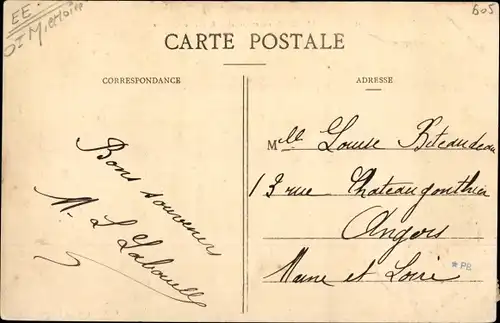 EE
Dt Militaire
605
CARTE POSTALE
CORRESPONDANCE
ADRESSE
Bons souvenirs
M. L Labouelle
Mlle Louise Biteaudeau
13 rue Chateaugonthier
Angers
Maine et Loire
*PB